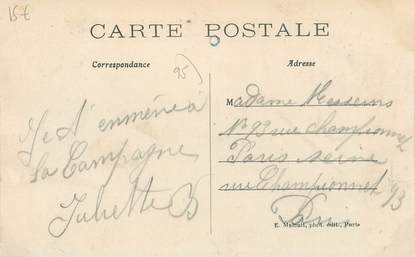 15€
CARTE POSTALE
Correspondance
Adresse
95
Je t'enmène à
la Campagne
Juliette B
Madame
N° 93 rue Championnet
Paris seine
rue Championnet 93
Paris
phot. édit., Paris